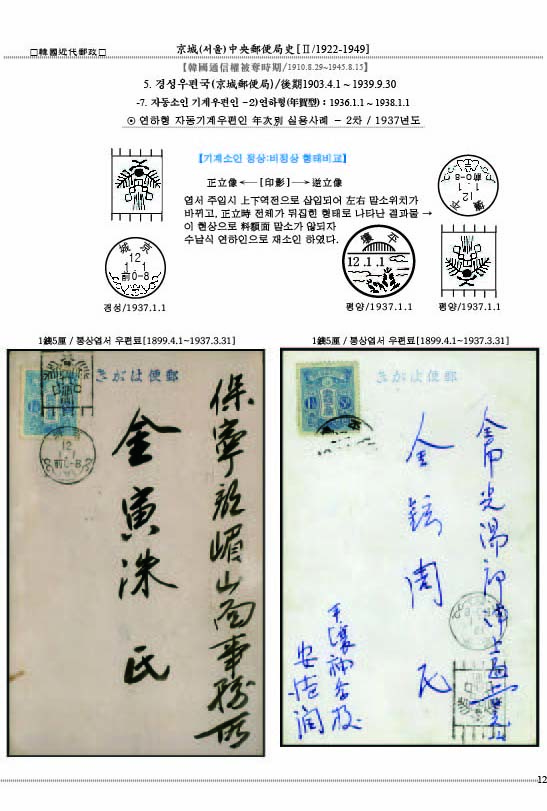 □韓國近代郵政□
京城(서울)中央郵便局史[Ⅱ/1922-1949]
【韓國通信權被奪時期/1910.8.29~1945.8.15】
5. 경성우편국(京城郵便局)/後期1903.4.1 ~ 1939.9.30
-7. 자동소인 기계우편인 -2)연하형(年賀型) : 1936.1.1 ~ 1938.1.1
⊙ 연하형 자동기계우편인 年次別 실용사례 - 2차 / 1937년도
【기계소인 정상:비정상 형태비교】
正立像 ←― [印影] ―→ 逆立像
엽서 주입시 上下역전으로 삽입되어 左右 말소위치가
바뀌고, 正立時 전체가 뒤집힌 형태로 나타난 결과물 →
이 현상으로 料額面 말소가 않되자
수납식 연하인으로 재소인 하였다.
京城
12
1.1
前0-8
경성/1937.1.1
平壤
12.1.1
평양/1937.1.1
平壤
12
1.1
前0-8
평양/1937.1.1
1錢5厘 / 통상엽서 우편료[1899.4.1~1937.3.31]
郵便はがき
12
1.1
前0-8
保寧郡嵋山面事務所
金寅洙 氏
1錢5厘 / 통상엽서 우편료[1899.4.1~1937.3.31]
郵便はがき
金
氏
安
12